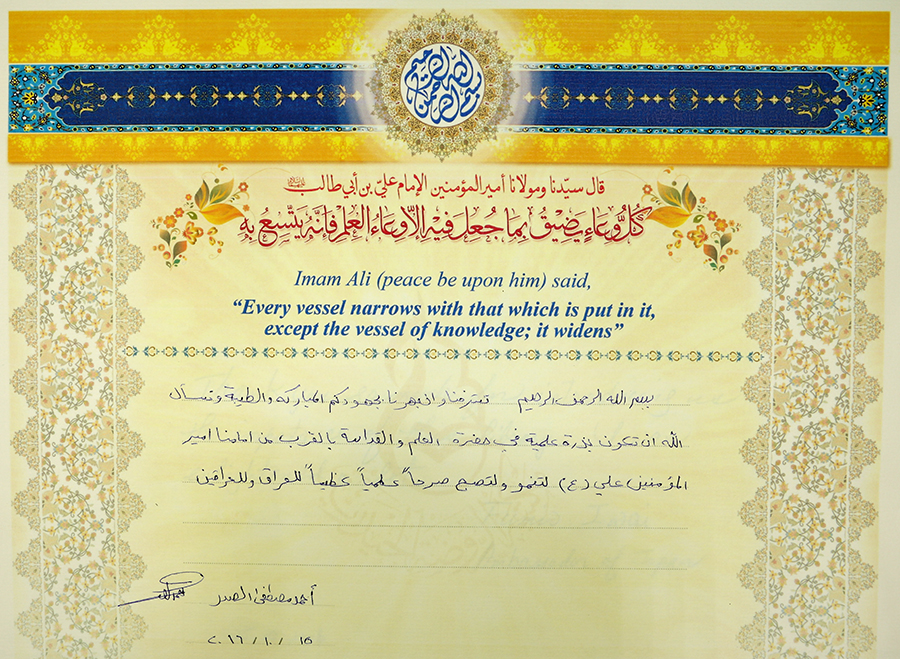 بسم الله الرحمن الرحيم
قال سيّدنا ومولانا أمير المؤمنين الإمام عليّ بن أبي طالب
كُلُّ وِعَاءٍ يَضِيْقُ بِمَا جُعِلَ فِيْهِ إِلَّا وِعَاءُ الْعِلْمِ فَإِنَّهُ يَتَّسِعُ بِهِ
Imam Ali (peace be upon him) said,
“Every vessel narrows with that which is put in it,
except the vessel of knowledge; it widens”
بسم الله الرحمن الرحيم تشرفنا وانبهرنا بجهودكم المباركه والطيبة ونسأل
الله ان تكون بذرة علمية في حضرة العلم والقداسة بالقرب من امامنا امير
المؤمنين علي (ع) لتنمو ولتصبح صرحاً علمياً عظيماً للعراق وللعراقيين
أحمد مصطفى الصدر
٢٠١٦/١٠/١٥